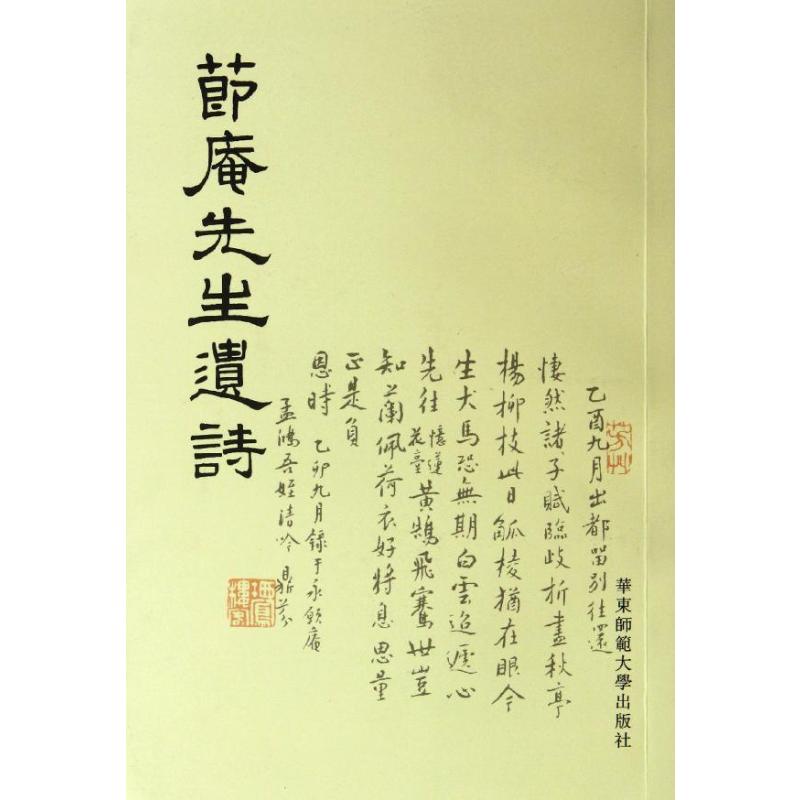 莭庵先生遺詩
乙酉九月出都畱別往還
悽然諸子賦臨歧折盡秋亭
楊柳枝此日觚棱猶在眼今
生犬馬恐無期白雲迢遞心
先往憶蓮花臺黃鵠飛騫世豈
知蘭佩荷衣好將息思量
正是負
恩時 乙卯九月錄于永願庵
孟鴻吾姪清吟 鼎芬
芳艸
華東師範大學出版社